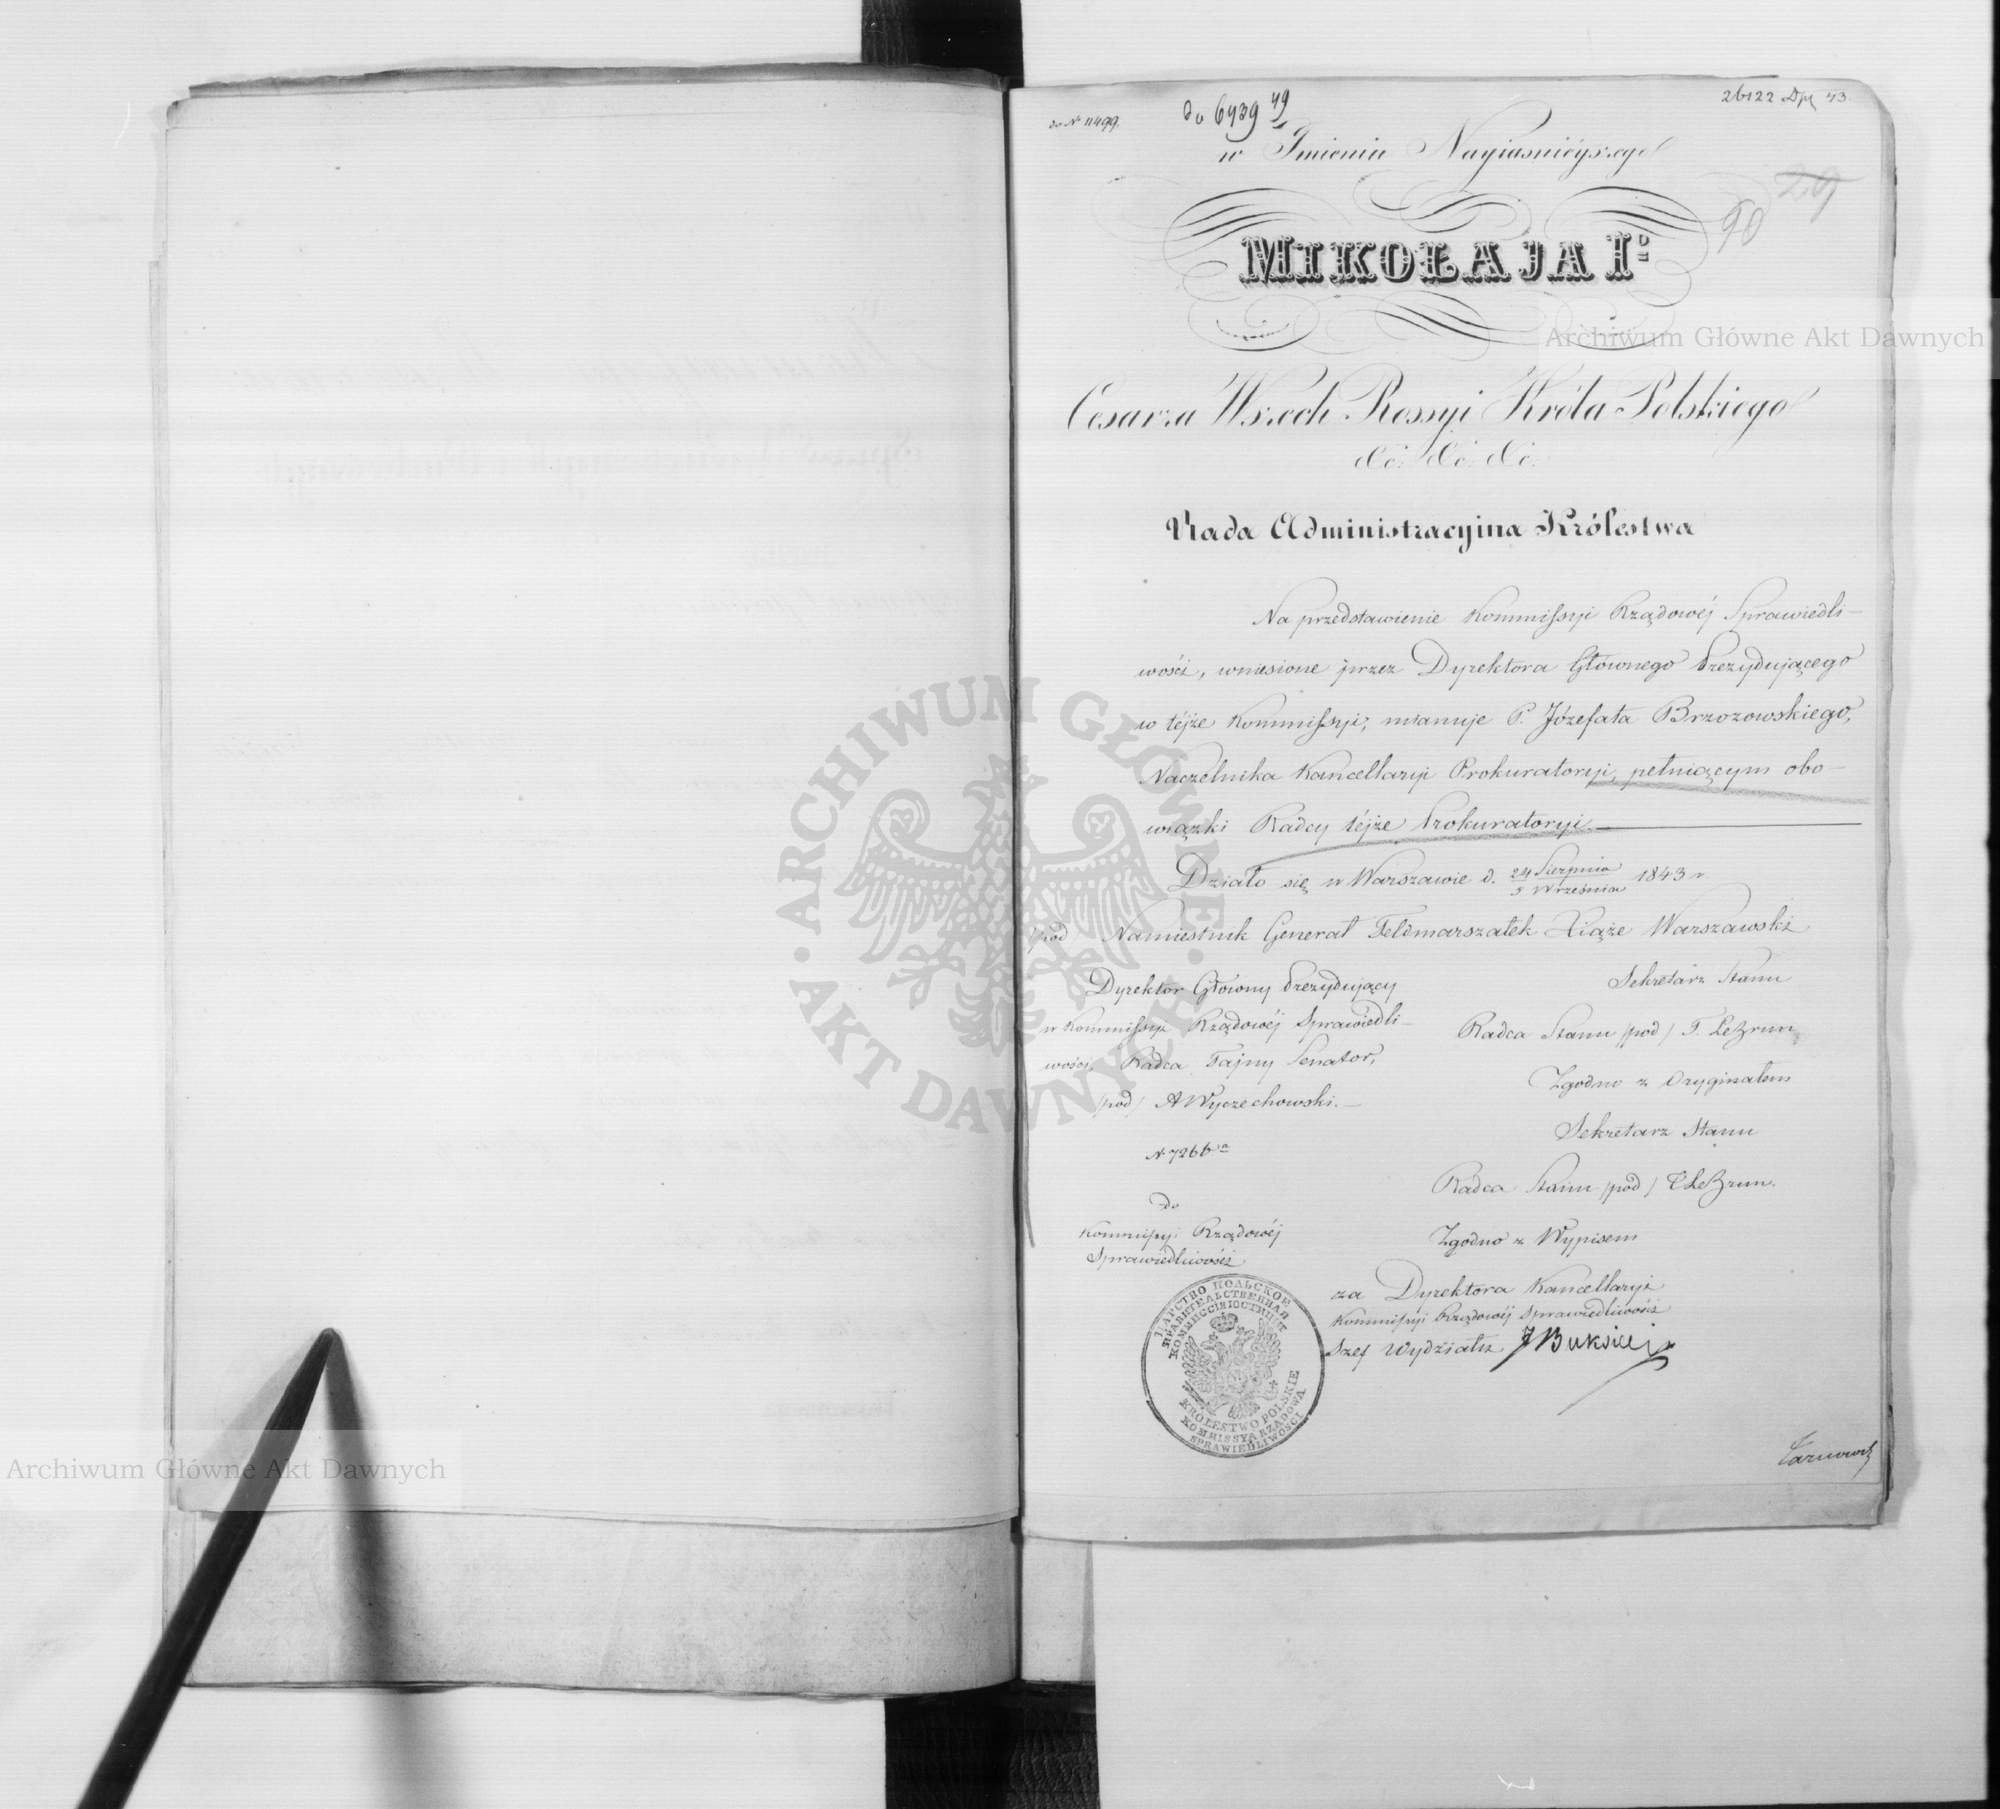 do N. 11499.
do 6939 49
26122 Dpt 43.
w Imieniu Nayiaśnieyszego
29
90
MIKOŁAJA Igo
Cesarza Wszech Rossyi Króla Polskiego
&c: &c: &c:
Rada Administracyjna Królestwa
Na przedstawienie Kommissyi Rządowéj Sprawiedli-
wości, wniesione przez Dyrektora Głównego Prezydującego
w téjże Kommissyi, mianuje P. Józefata Brzozowskiego,
Naczelnika Kancellaryi Prokuratoryi, pełniącym obo-
wiązki Radcy téjże Prokuratoryi.
Działo się w Warszawie d. 24 Sierpnia / 5 Września 1843 r.
/pod/ Namiestnik Generał Feldmarszałek Xiąże Warszawski
Dyrektor Głowny Prezydujący
w Kommissyi Rządowéj Sprawiedli-
wości, Radca Tajny Senator,
/pod/ A Wyczechowski.-
N. 7266 a
do
Kommissyi Rządowéj
Sprawiedliwości
Sekretarz Stanu
Radca Stanu /pod/ T. LeBrun
Zgodno z Oryginałem
Sekretarz Stanu
Radca Stanu /pod/ T LeBrun.
Zgodno z Wypisem
za Dyrektora Kancellaryi
Kommissyi Rządowéj Sprawiedliwości
Szef Wydziału
ЦАРСТВО ПОЛЬСКОЕ
ПРАВИТЕЛЬСТВЕННАЯ
КОММИССІЯ ЮСТИЦІИ
KRÓLESTWO POLSKIE
KOMMISSYA RZĄDOWA
SPRAWIEDLIWOŚCI
Archiwum Główne Akt Dawnych
ARCHIWUM GŁÓWNE
AKT DAWNYCH
Archiwum Główne Akt Dawnych